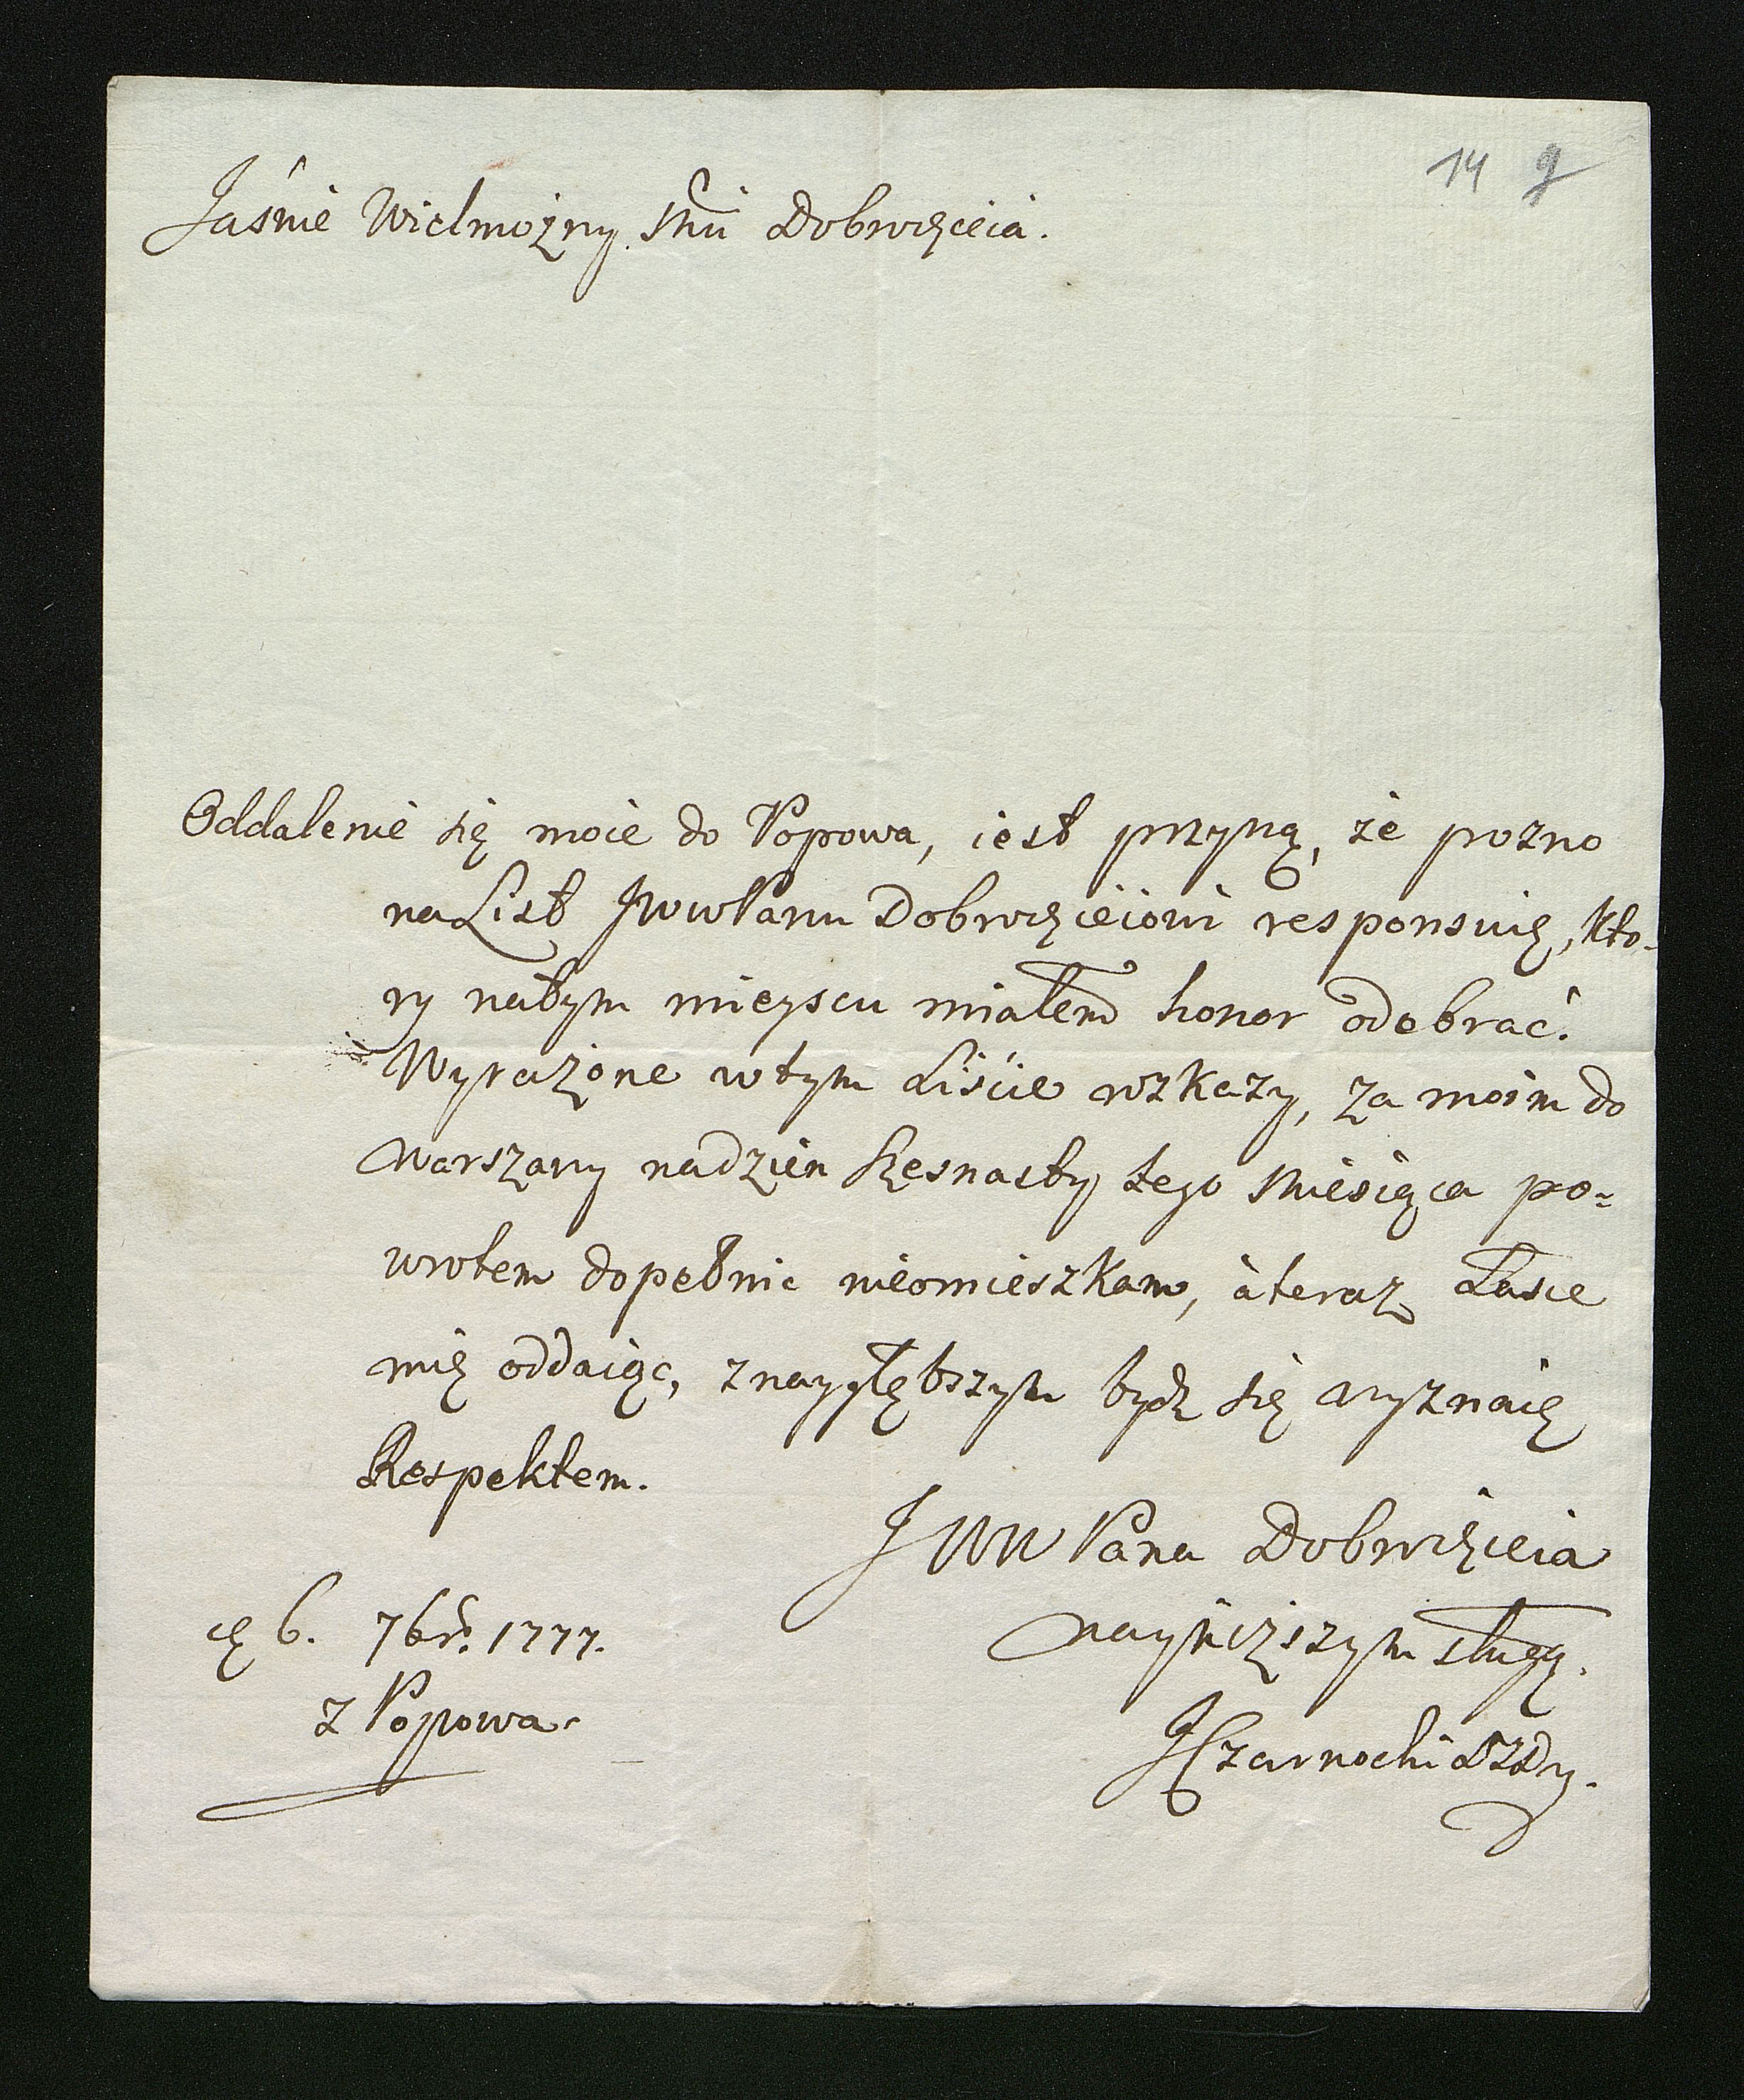 14 9
Jaśnie Wielmożny Mci Dobrodzieia.
Oddalenie się moie do Popowa, iest przyną, że pozno
na List JWWPanu Dobrodzieiowi responsuię, kto-
ry natym mieyscu miałem honor odebrać.
Wyrażone wtym Liście rozkazy, za moim do
Warszawy nadzien szesnasty tego Miesiąca po-
wrotem dopełnic nieomieszkam, ateraz Łasce
mię oddaiąc, znaygłębszym bydz się wyznaię
Respektem.
JWW Pana Dobrodzieia
nayniższym sługą.
6. 7bris 1777.
z Popowa.
JCzarnocki